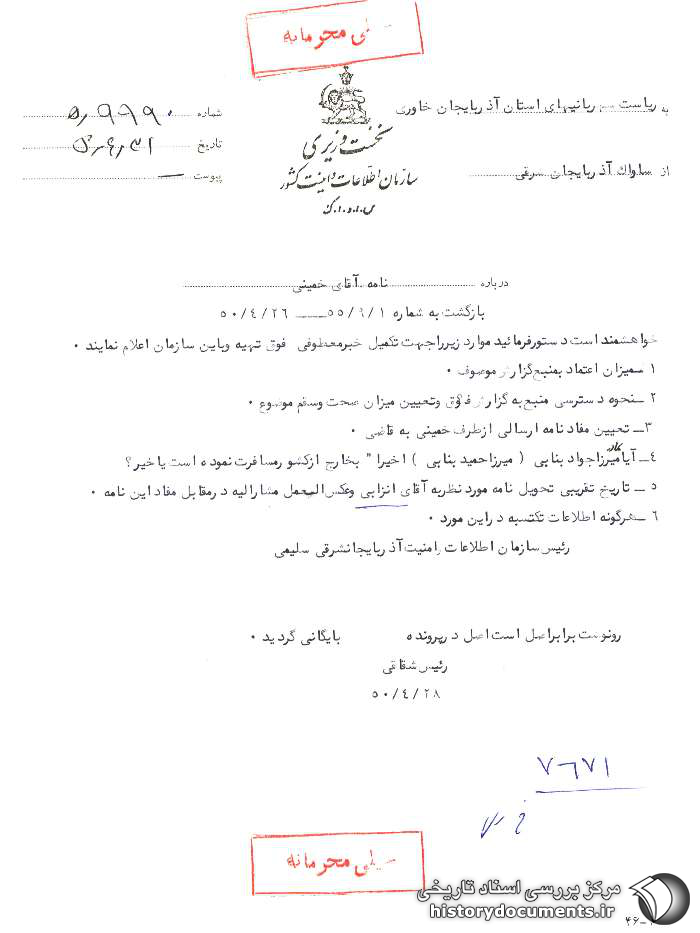 خیلی محرمانه
به ریاست شهربانیهای استان آذربایجان خاوری
شماره
تاریخ
پیوست —
از ساواك آذربایجان شرقی
نخست وزیری
سازمان اطلاعات و امنیت کشور
س.ا.و.ا.ک
درباره نامه آقای خمینی
بازگشت به شماره ۵۵/۹/۱ — ۵۰/۴/۲۶
خواهشمند است دستورفرمائید موارد زیرراجهت تکمیل خبرمعطوفی فوق تهیه وباین سازمان اعلام نمایند ۰
۱ — میزان اعتماد بمنبع گزارش موصوف ۰
۲ — نحوه دسترسی منبع به گزارش فوق وتعیین میزان صحت وسقم موضوع ۰
۳ — تعیین مفاد نامه ارسالی ازطرف خمینی به قاضی ۰
۴ — آیا میرزاجواد بنابی ( میرزاحمید بنابی ) اخیرا" بخارج ازکشور مسافرت نموده است یا خیر؟
۵ — تاریخ تقریبی تحویل نامه مورد نظربه آقای انزابی وعکس العمل مشارالیه درمقابل مفاد این نامه ۰
۶ — هرگونه اطلاعات مکتسبه دراین مورد ۰
رئیس سازمان اطلاعات وامنیت آذربایجانشرقی سلیمی
رونوشت برابراصل است اصل درپرونده بایگانی گردید ۰
رئیس شقاقی
۵۰/۴/۲۸
۷۶۷۱
خیلی محرمانه
مرکز بررسی اسناد تاریخی
historydocuments.ir